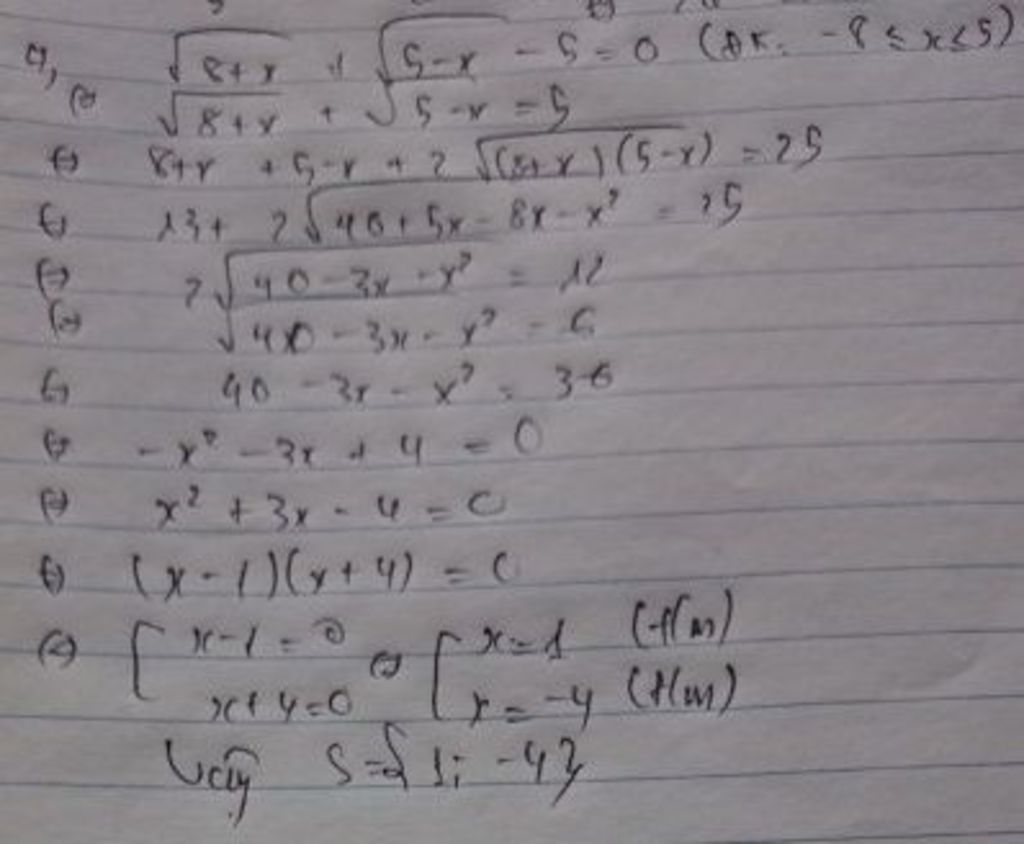 √(8+x) + √(5-x) - 5 = 0 (ĐK: -8 ≤ x ≤ 5)
⇔ √(8+x) + √(5-x) = 5
⇔ 8+x + 5-x + 2√((8+x)(5-x)) = 25
⇔ 13 + 2√(40+5x-8x-x²) = 25
⇔ 2√(40-3x-x²) = 12
⇔ √(40-3x-x²) = 6
⇔ 40-3x-x² = 36
⇔ -x²-3x+4 = 0
⇔ x²+3x-4 = 0
⇔ (x-1)(x+4) = 0
⇔ [ x-1=0 ⇔ [ x=1 (t/m)
x+4=0 x=-4 (t/m)
Vậy S={1; -4}